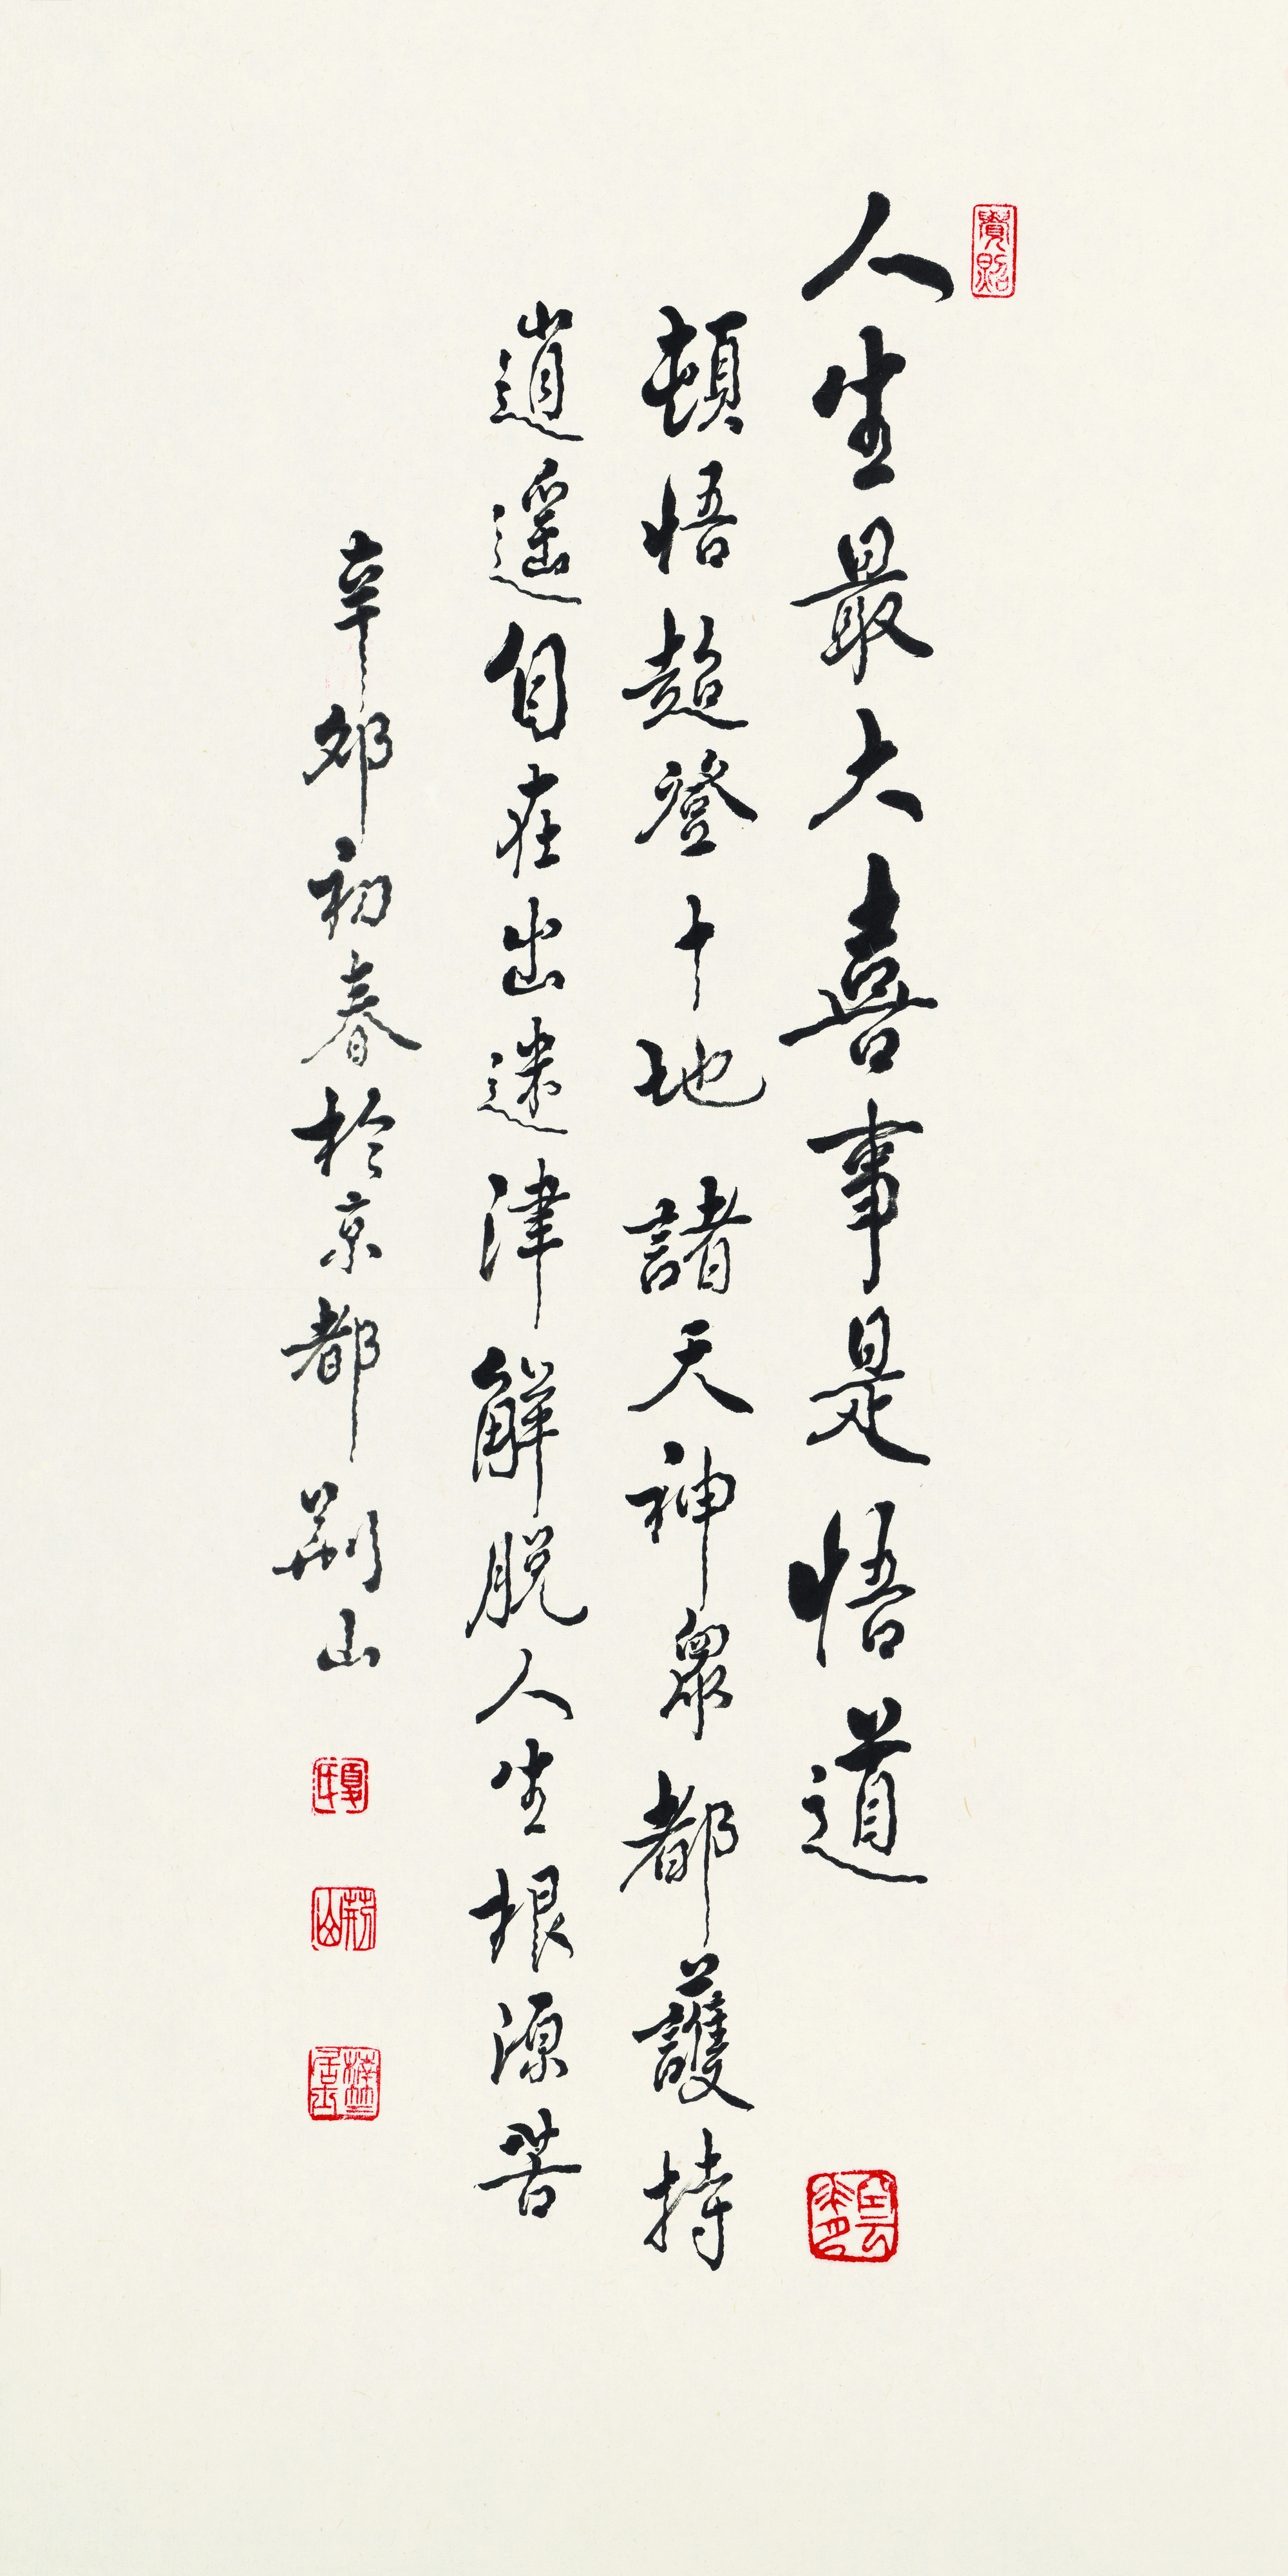 人生最大喜事是悟道
頓悟超登十地諸天神眾都護持
逍遙自在出迷津解脫人生根源苦
辛卯初春於京都荊山
夏氏
荊山